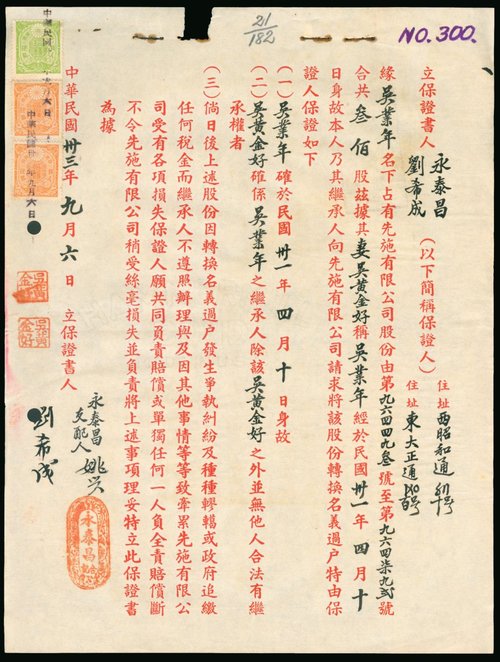 21/182
NO.300.
立保證書人 永泰昌 劉希成 (以下簡稱保證人) 住址西昭和通 住址東大正通
緣吳業年名下占有先施有限公司股份由第九六四四九叁號至第九六四柒九弍號
合共叁佰股茲據其妻吳黃金好稱吳業年經於民國卅一年四月十
日身故本人乃其繼承人向先施有限公司請求將該股份轉換名義過户特由保
證人保證如下
(一)吳業年確於民國卅一年四月十日身故
(二)吳黃金好確係吳業年之繼承人除該吳黃金好之外並無他人合法有繼
承權者
(三)倘日後上述股份因轉換名義過户發生爭執糾紛及種種轇轕或政府追繳
任何税金而繼承人不遵照辦理與及因其他事情等等致牽累先施有限公
司受有各項損失保證人願共同負責賠償或單獨任何一人負全責賠償斷
不令先施有限公司稍受絲毫損失並負責將上述事項理妥特立此保證書
為據
中華民國卅三年九月六日 立保證書人
永泰昌
支配人 姚
劉希成
永泰昌
吳黃金好
吳黃金好
中華民國 年九月六日
中華民國卅 年九月六日